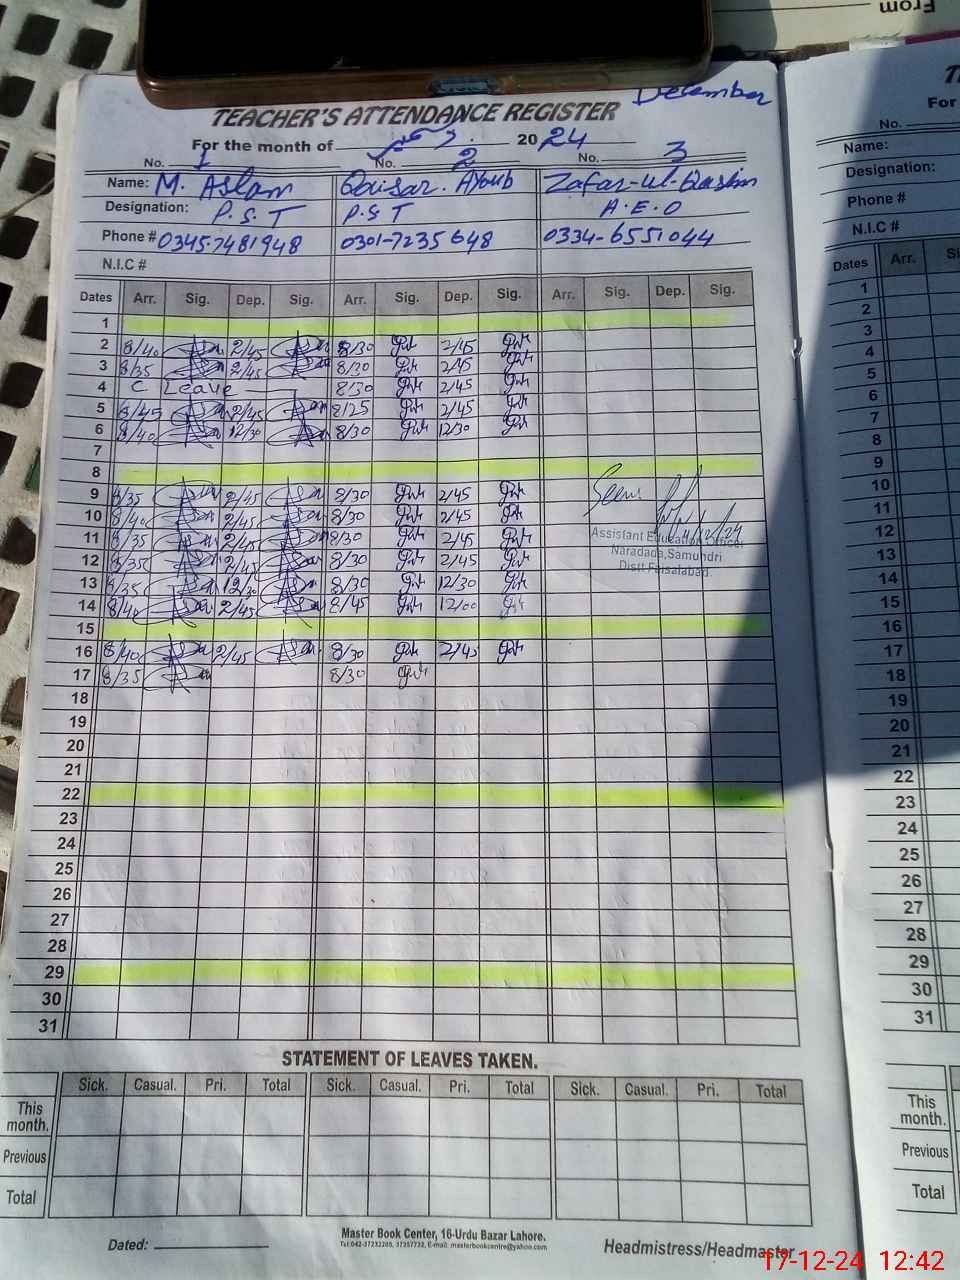 From
December
TEACHER'S ATTENDANCE REGISTER
For the month of 2024
No. 1 No. 2 No. 3
Name: M. Aslam Qaisar. Ayoub Zafar-ul-
Designation: P.S.T P.S T A.E.O
Phone # 0345-7481948 0301-7235648 0334-6551044
N.I.C #
Dates Arr. Sig. Dep. Sig. Arr. Sig. Dep. Sig. Arr. Sig. Dep. Sig.
1
2 8/40 2/45 8/30 2/45
3 8/35 2/45 8/30 2/45
4 C Leave 8/30 2/45
5 8/45 2/45 8/25 2/45
6 8/40 12/30 8/30 12/30
7
8
9 8/35 2/45 8/30 2/45
10 8/40 2/45 8/30 2/45
11 8/35 2/45 8/30 2/45
12 8/35 2/45 8/30 2/45
13 8/35 12/30 8/30 12/30
14 8/40 2/45 8/45 12/00
15
16 8/40 2/45 8/30 2/45
17 8/35 8/30
18
19
20
21
22
23
24
25
26
27
28
29
30
31
Seen
Assistant Education Officer
Naradada, Samundri
Distt Faisalabad.
STATEMENT OF LEAVES TAKEN.
Sick. Casual. Pri. Total Sick. Casual. Pri. Total Sick. Casual. Pri. Total
This month.
Previous
Total
Dated:
Master Book Center, 16-Urdu Bazar Lahore.
Tel:042-37232205, 37357732, E-mail: masterbookcentre@yahoo.com
Headmistress/Headmaster
For
No.
Name:
Designation:
Phone #
N.I.C #
Dates Arr.
1
2
3
4
5
6
7
8
9
10
11
12
13
14
15
16
17
18
19
20
21
22
23
24
25
26
27
28
29
30
31
This month.
Previous
Total
17-12-24 12:42